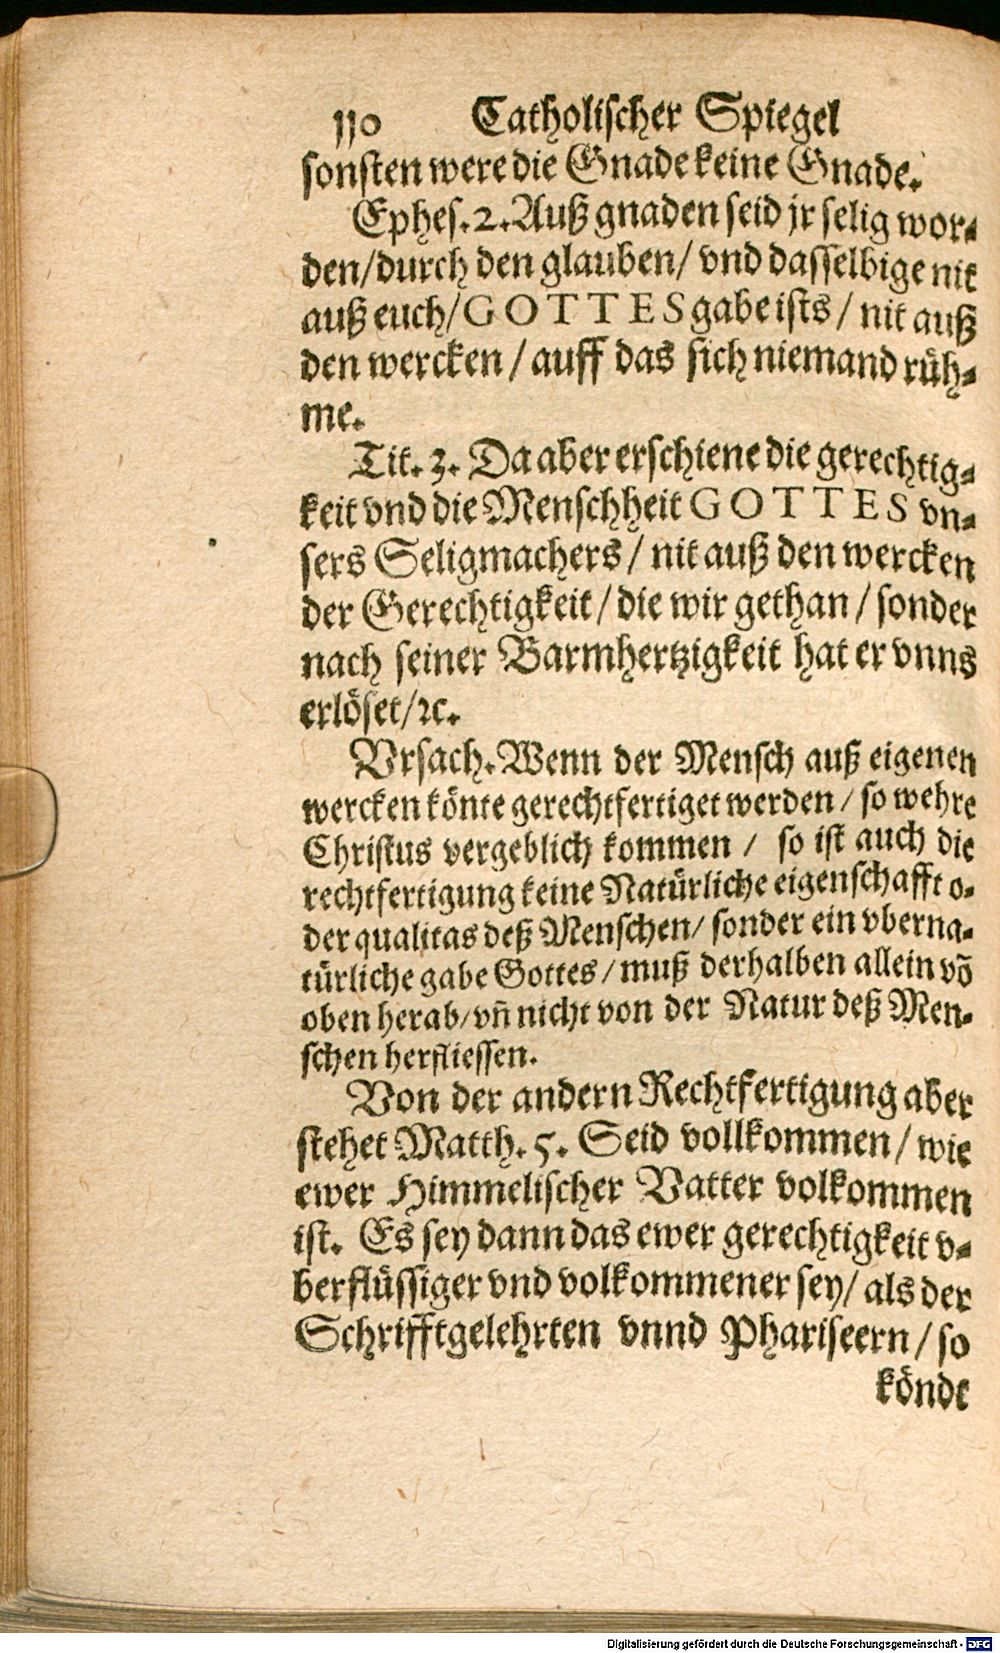 110 Catholischer Spiegel
sonsten were die Gnade keine Gnade.
Ephes. 2. Auß gnaden seid jr selig wor-
den/durch den glauben/ vnd dasselbige nit
auß euch/GOTTES gabe ists/ nit auß
den wercken/ auff das sich niemand rüh-
me.
Tit. 3. Da aber erschiene die gerechtig-
keit vnd die Menschheit GOTTES vn-
sers Seligmachers/ nit auß den wercken
der Gerechtigkeit/ die wir gethan/ sonder
nach seiner Barmhertzigkeit hat er vnns
erlöset/ꝛc.
Vrsach. Wenn der Mensch auß eigenen
wercken könte gerechtfertiget werden/ so wehre
Christus vergeblich kommen/ so ist auch die
rechtfertigung keine Natürliche eigenschafft o-
der qualitas deß Menschen/ sonder ein vberna-
türliche gabe Gottes/ muß derhalben allein võ
oben herab/ vñ nicht von der Natur deß Men-
schen herfliessen.
Von der andern Rechtfertigung aber
stehet Matth. 5. Seid vollkommen/ wie
ewer Himmelischer Vatter volkommen
ist. Es sey dann das ewer gerechtigkeit v-
berflüssiger vnd volkommener sey/ als der
Schrifftgelehrten vnnd Phariseern/ so
könde
Digitalisierung gefördert durch die Deutsche Forschungsgemeinschaft - DFG